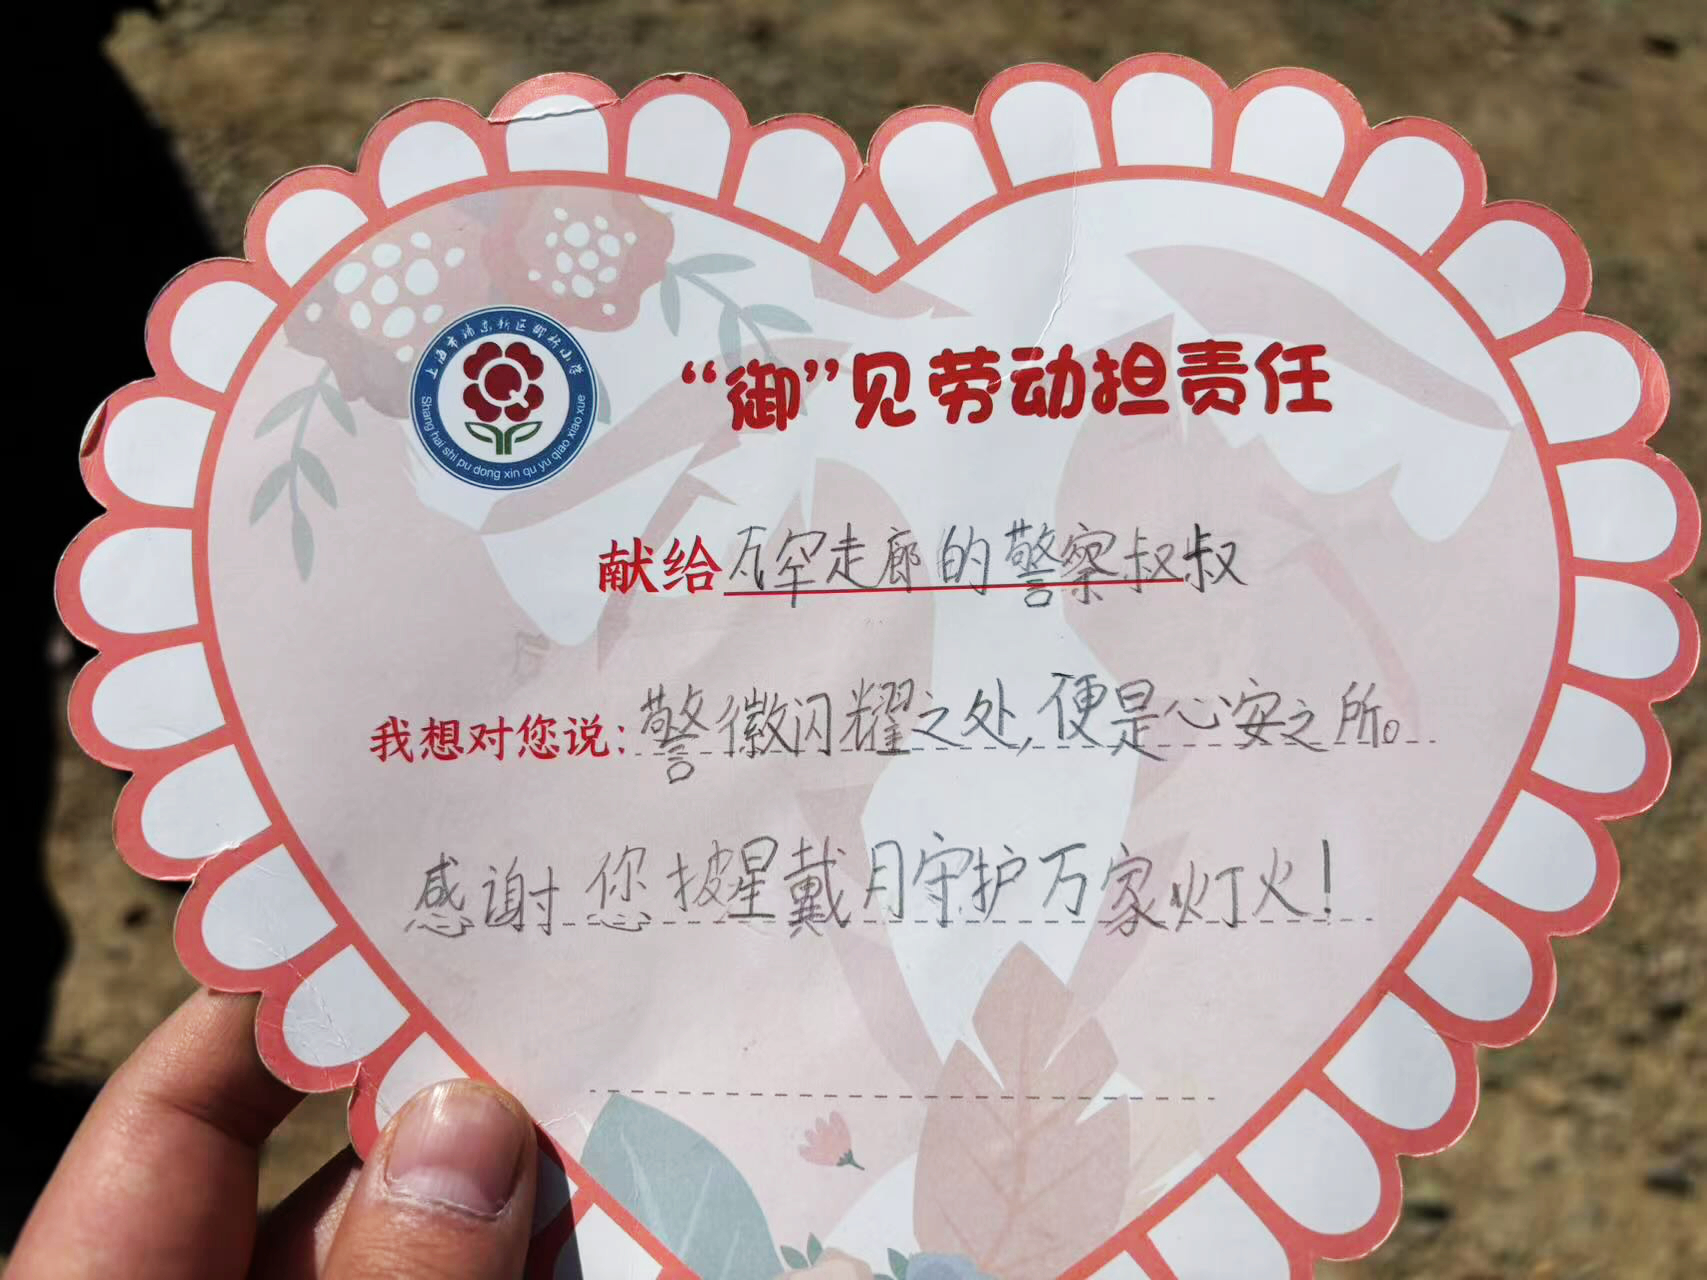 上海市浦东新区御桥小学
Shang hai shi pu dong xin qu yu qiao xiao xue
“御”见劳动担责任
献给瓦罕走廊的警察叔叔
我想对您说：警徽闪耀之处，便是心安之所。
感谢您披星戴月守护万家灯火！